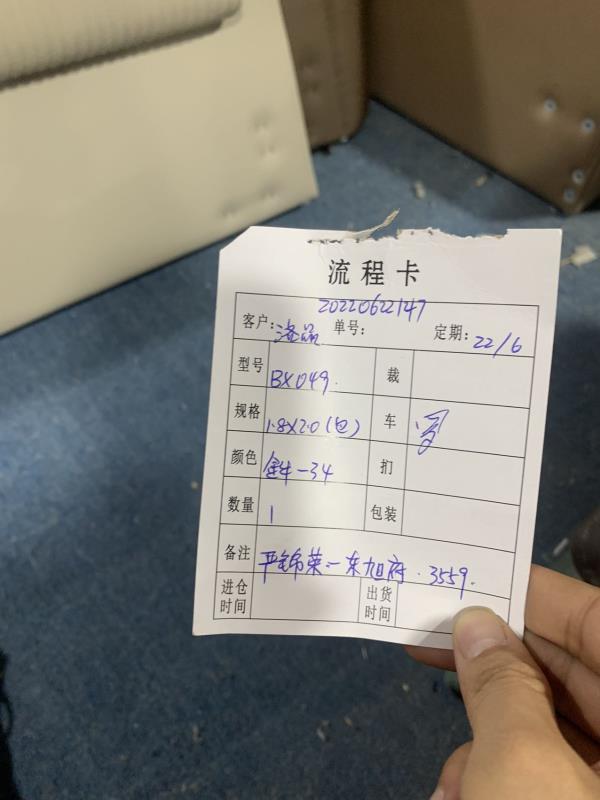 流程卡
20220622147
客户: 洛品 单号: 定期: 22/6
型号 BX049. 裁
规格 1.8X2.0(包) 车
颜色 全牛-34 扪
数量 1 包装
备注 严锦荣-东旭府.3559.
进仓时间 出货时间